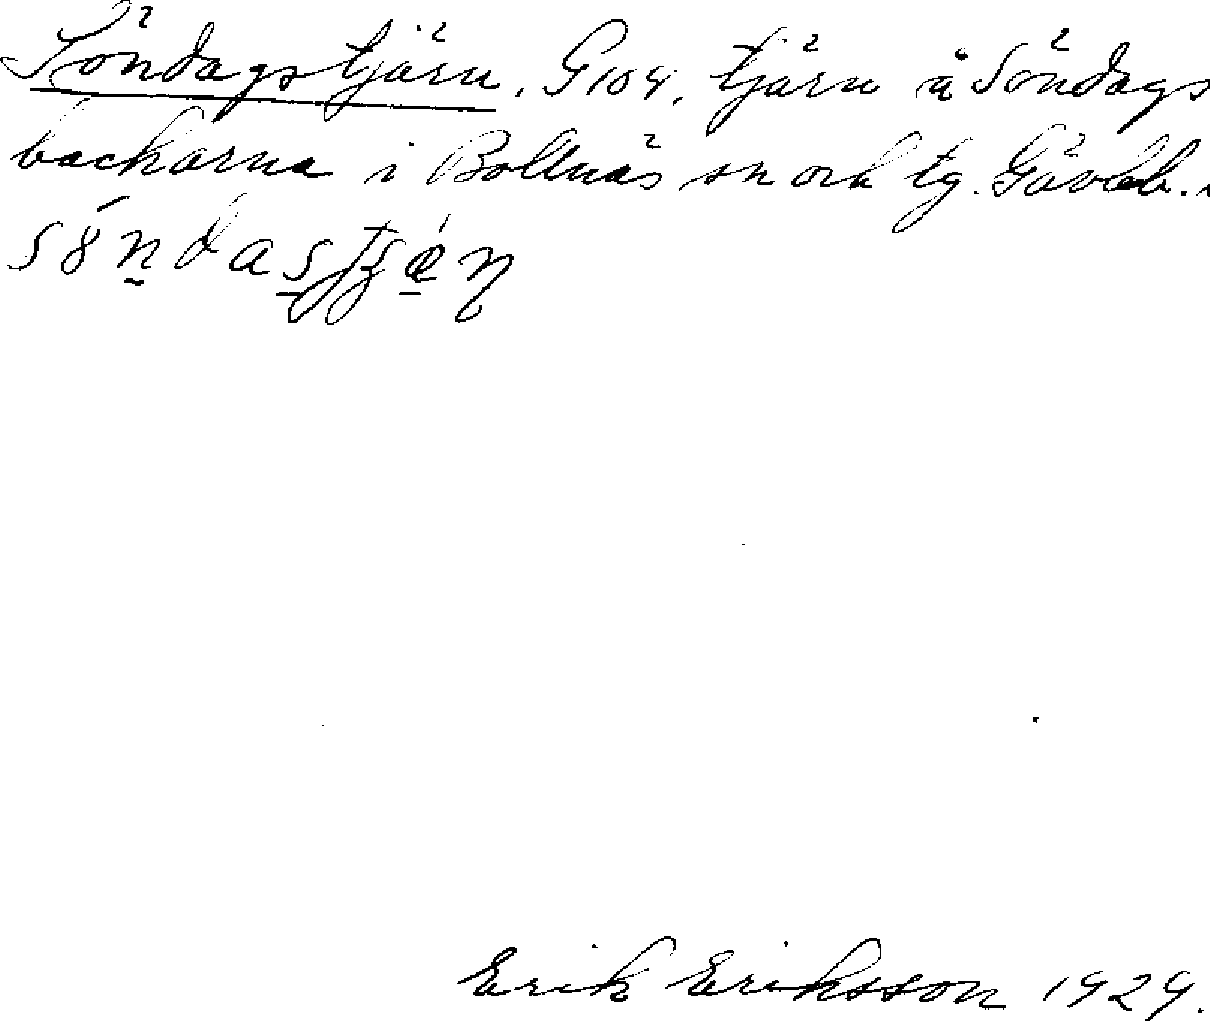 Söndagstjärn. G 104. tjärn å Söndags
backarna i Bollnäs sn och tg. Gävleb. l
Erik Eriksson 1929.